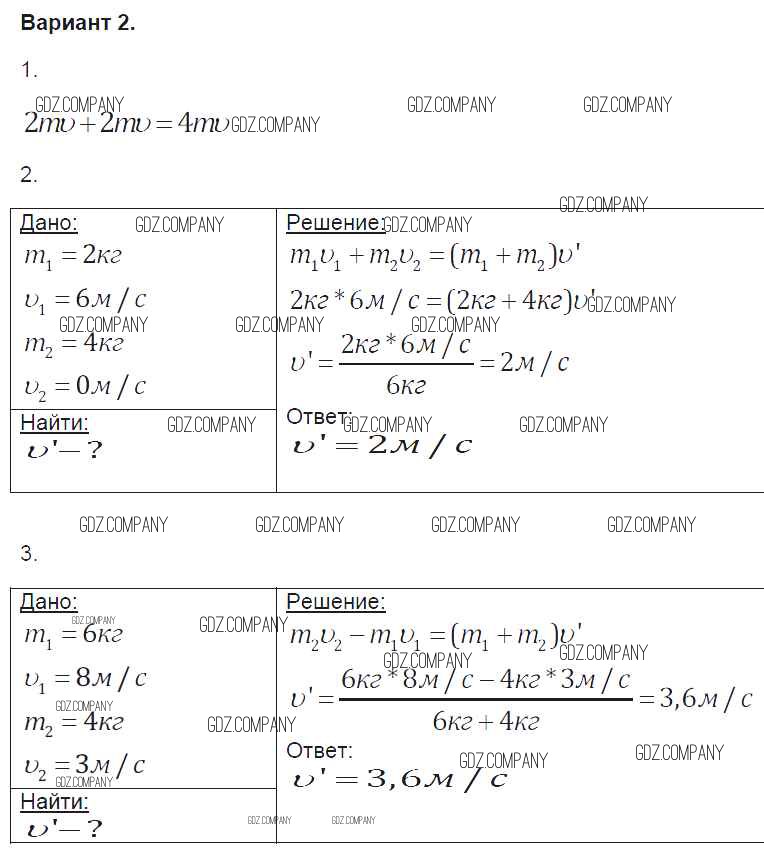 Вариант 2.
1.
GDZ.COMPANY GDZ.COMPANY GDZ.COMPANY
2mυ + 2mυ = 4mυ GDZ.COMPANY
2.
GDZ.COMPANY
Дано: GDZ.COMPANY
m₁ = 2кг
υ₁ = 6м / с
GDZ.COMPANY GDZ.COMPANY
m₂ = 4кг
υ₂ = 0м / с
Найти: GDZ.COMPANY
υ'– ?
Решение: GDZ.COMPANY
m₁υ₁ + m₂υ₂ = (m₁ + m₂)υ'
2кг * 6м / с = (2кг + 4кг)υ' GDZ.COMPANY
GDZ.COMPANY
υ' = 2кг * 6м / с / 6кг = 2м / с
Ответ: GDZ.COMPANY GDZ.COMPANY
υ' = 2м / с
GDZ.COMPANY GDZ.COMPANY GDZ.COMPANY GDZ.COMPANY
3.
Дано:
GDZ.COMPANY GDZ.COMPANY
m₁ = 6кг
υ₁ = 8м / с
GDZ.COMPANY
m₂ = 4кг GDZ.COMPANY
υ₂ = 3м / с
GDZ.COMPANY
Найти:
υ'– ?
Решение:
m₂υ₂ − m₁υ₁ = (m₁ + m₂)υ'
GDZ.COMPANY GDZ.COMPANY
υ' = 6кг * 8м / с − 4кг * 3м / с / 6кг + 4кг = 3,6м / с
Ответ: GDZ.COMPANY GDZ.COMPANY
υ' = 3,6м / с
GDZ.COMPANY GDZ.COMPANY